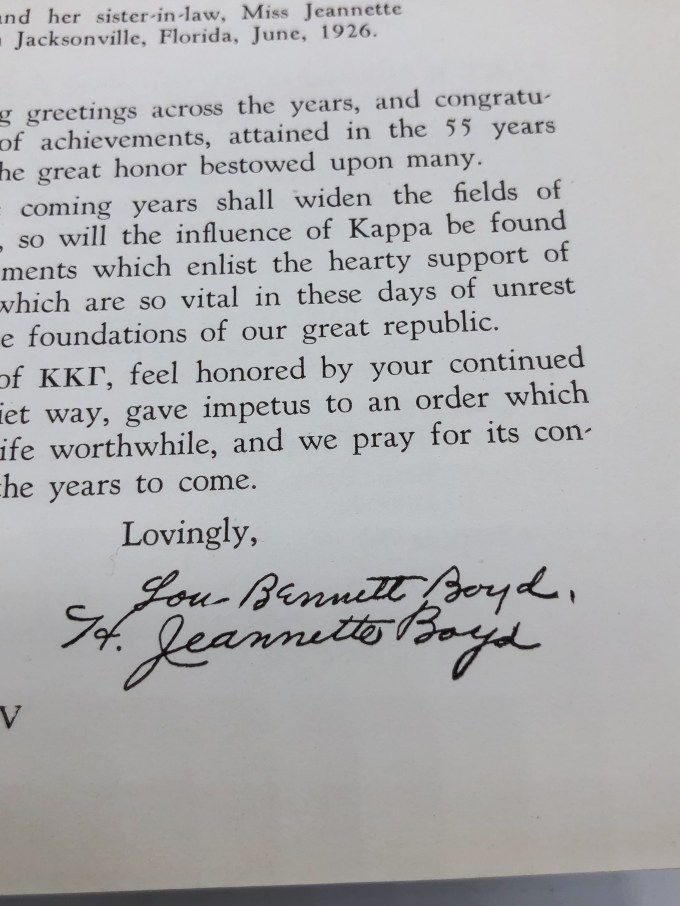 and her sister-in-law, Miss Jeannette
Jacksonville, Florida, June, 1926.
g greetings across the years, and congratu-
of achievements, attained in the 55 years
he great honor bestowed upon many.
coming years shall widen the fields of
, so will the influence of Kappa be found
ments which enlist the hearty support of
which are so vital in these days of unrest
e foundations of our great republic.
of ΚΚΓ, feel honored by your continued
iet way, gave impetus to an order which
ife worthwhile, and we pray for its con-
he years to come.
Lovingly,
Lou Bennett Boyd.
H. Jeannette Boyd
V